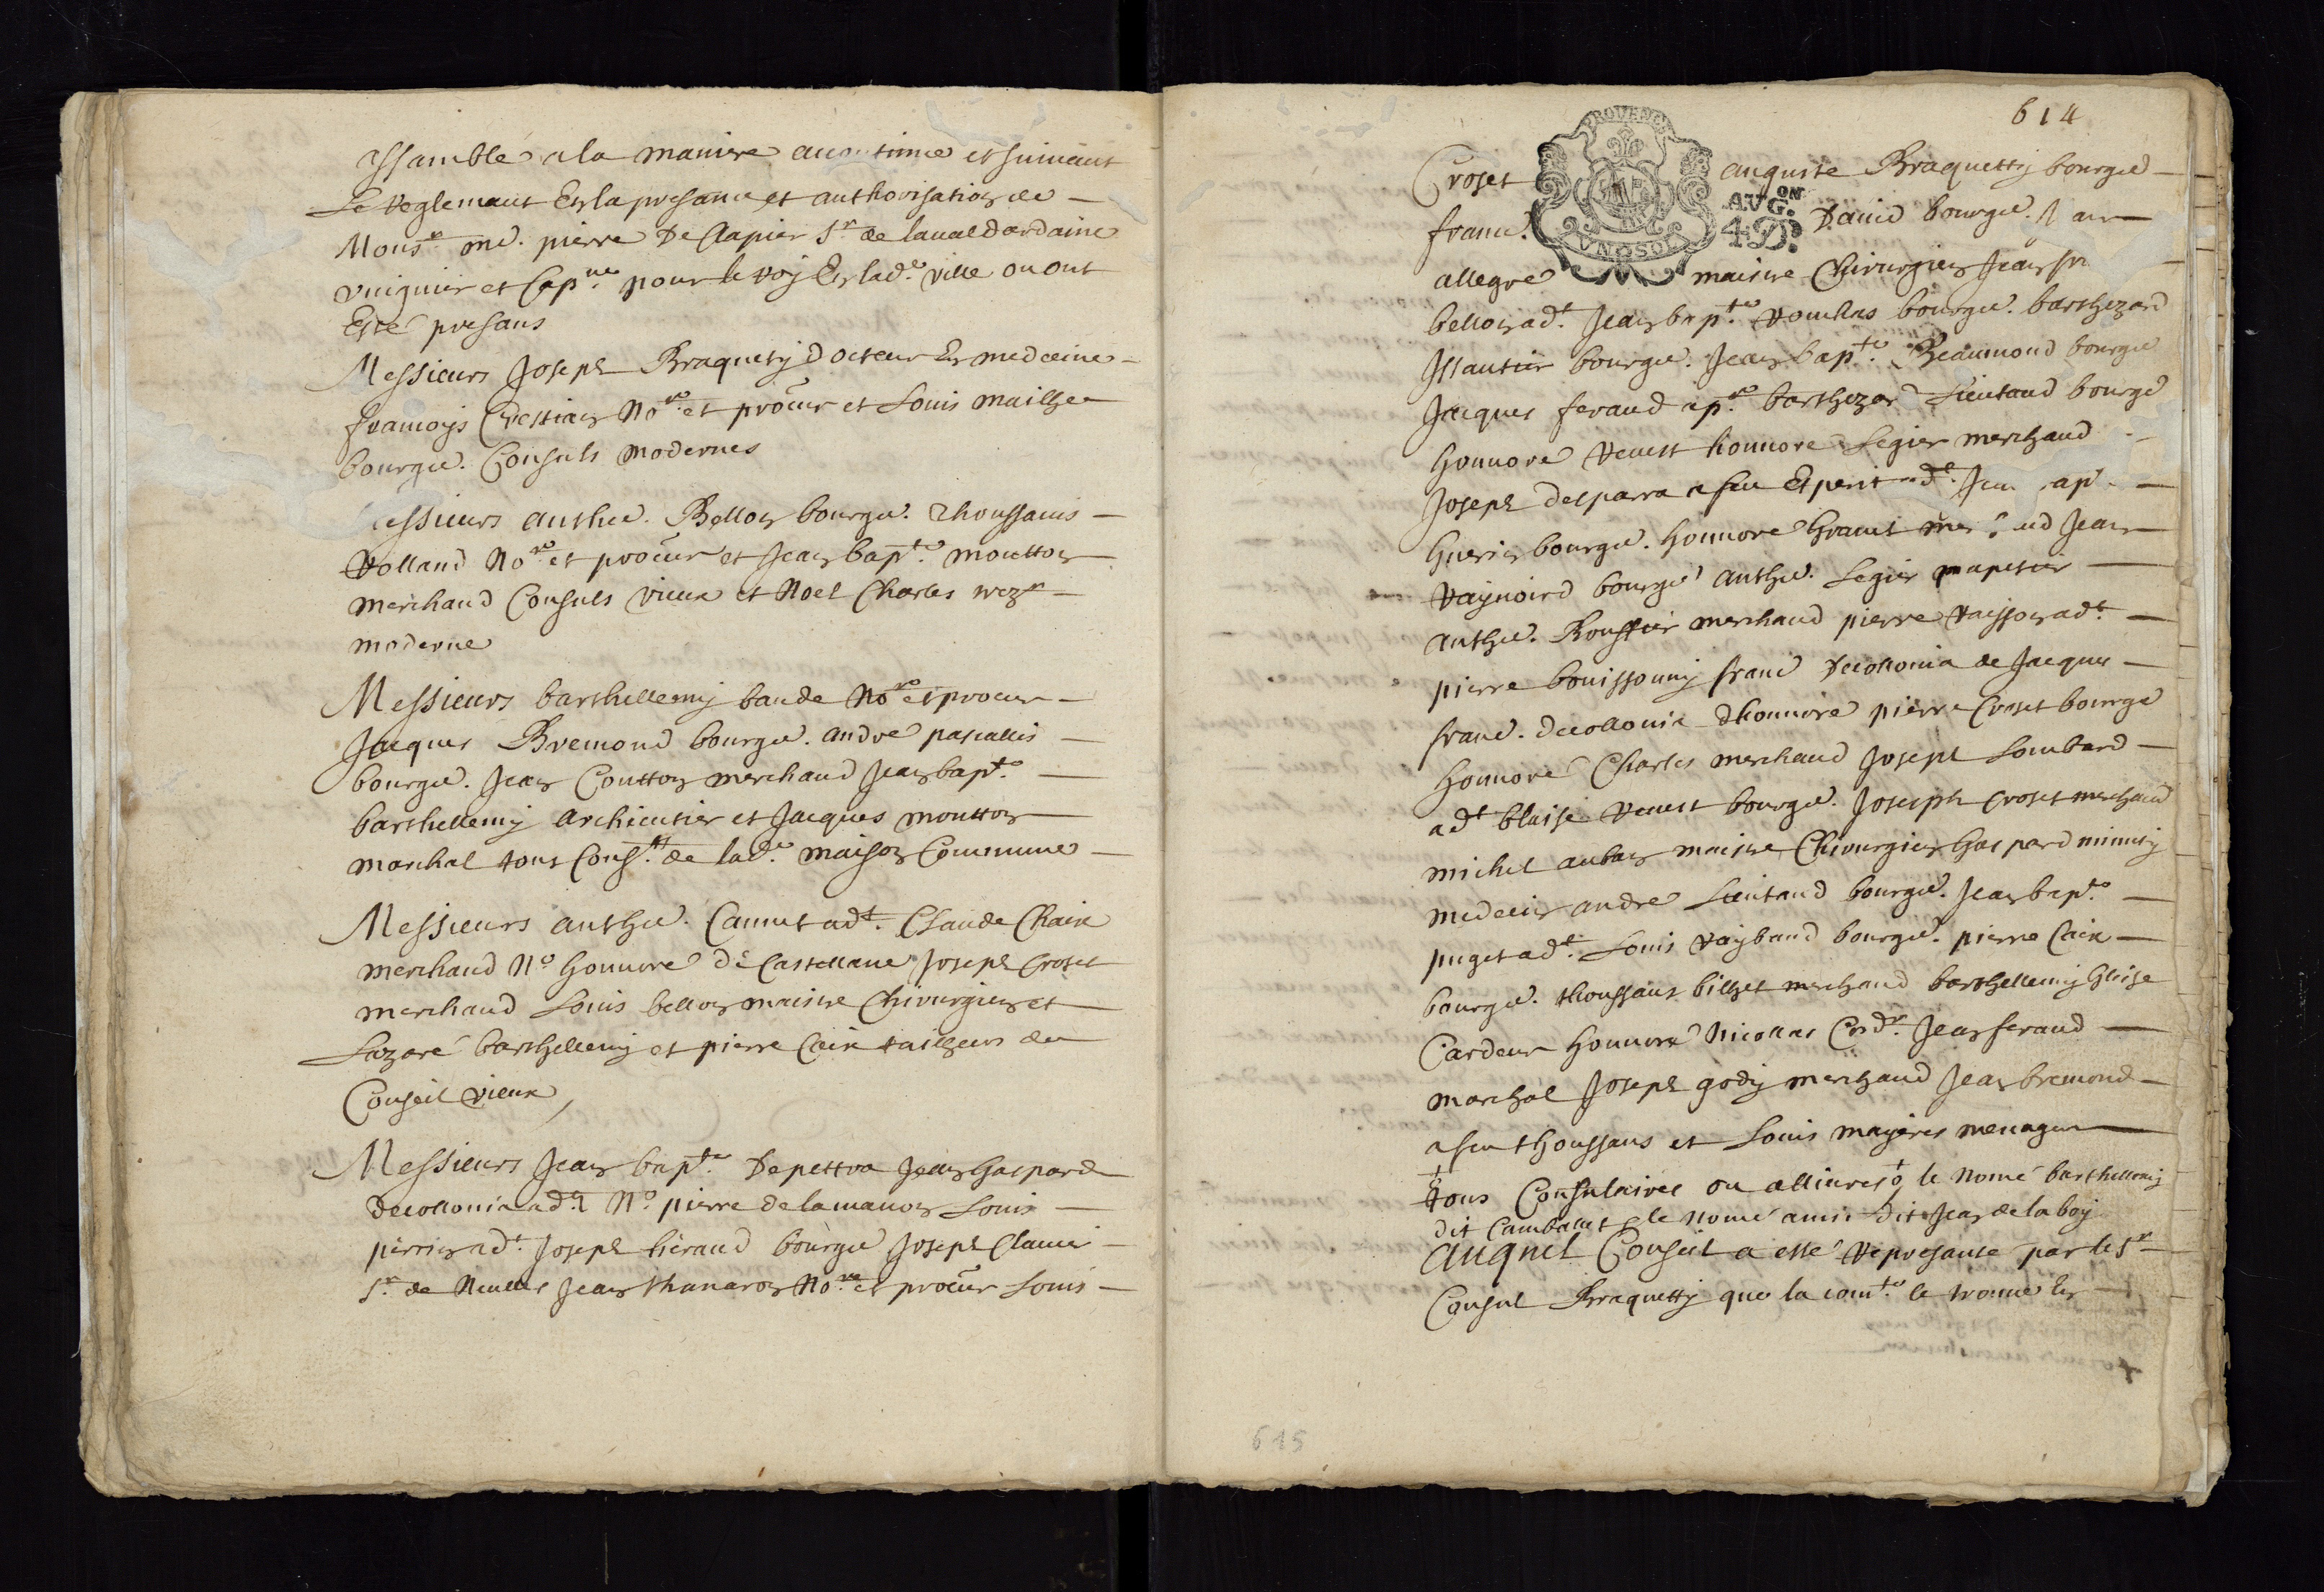 assamble a la maniere acoutume et suivant
Le reglemant En la presance et authorisation de
Mons.r me. pierre De Clapier S.r de lavaldardaine
viguier et Cap.ne pour le roy En lad.e ville ou ont
Esté presans
Messieurs Joseph Braquety docteur En medecine
francoys Crestian No.re et procur et Louis mailhe
bourge. Consuls modernes
essieurs anthe. Bellon bourge. Thoussanis
Volland No.re et procur et Jean bapt.e moutton
merchand Consuls vieux et Noel Charles trez.r
moderne
Messieurs barthellemy baude No.re et procur
Jacques Bremond bourge. andre pascallis
bourge. Jean Coutton merchand Jean bapt.e
barthellemy archieutier et Jacques moutton
marchal tous Cons.rs de lad.e maison Commune
Messieurs anthe. Cannet ad.t Claude Chaix
merchand N.o honnore de Castellane Joseph Croset
merchand Louis bellon maistre Chirurgien et
Lazare barthellemy et pierre Caix tailheur du
Conseil vieux
Messieurs Jean bapt.e Depettra Jean Gaspard
decollonia ad.t N.o pierre de lamanon Louis
pierrin ad.t Joseph hieraud bourge Joseph Clavier
S.r de Neulles Jean thaneron No.re et procur Louis
614
Croset auguste Braquetty bourge
PROVENCE
AVG.ON
4.D.
VN SOL
franc. David bourge.
allegre maistre Chirurgien Jean
bellon ad.t Jean bapt.e roullas bourge. barthezard
Issautier bourge. Jean bapt.e Beaumond bourge
Jacques feraud ap.re barthezar Lieutaud bourge
honnore Venest honnore Legier merchand
Joseph desparra a feu Esperit ad.t bap
Guerin bourge. honnore Granet Jean
Raynoird bourge anthe. Legier papetier
anthe. Roustier merchand pierre Vaisson ad.t
pierre bouissonny franc Decollonia de Jacques
franc. decollonia dhonnore pierre Croset bourge
honnore Charles merchand Joseph Lombard
ad.t blaise Venest bourge. Josesph Croset merchand
michel auban maistre Chirurgien Gaspard minuty
medecin andre Lieutaud bourge. Jean bapt.e
puget ad.t Louis Raybaud bourge. pierre Caix
bourge. thoussans bilhet merchand barthellemy Glise
Cardeur honnore Nicollas Cord.r Jean feraud
marchal Joseph gody merchand Jean bremond
a feu thoussans et Louis mayeres menager
tous Consulaires ou allivres le nome barthellemy
dit Camballet le nome dit Jean de la boy
auquel Conseil a esté represanté par le S.r
Consul Braquetty que la com.te se trouve En
615